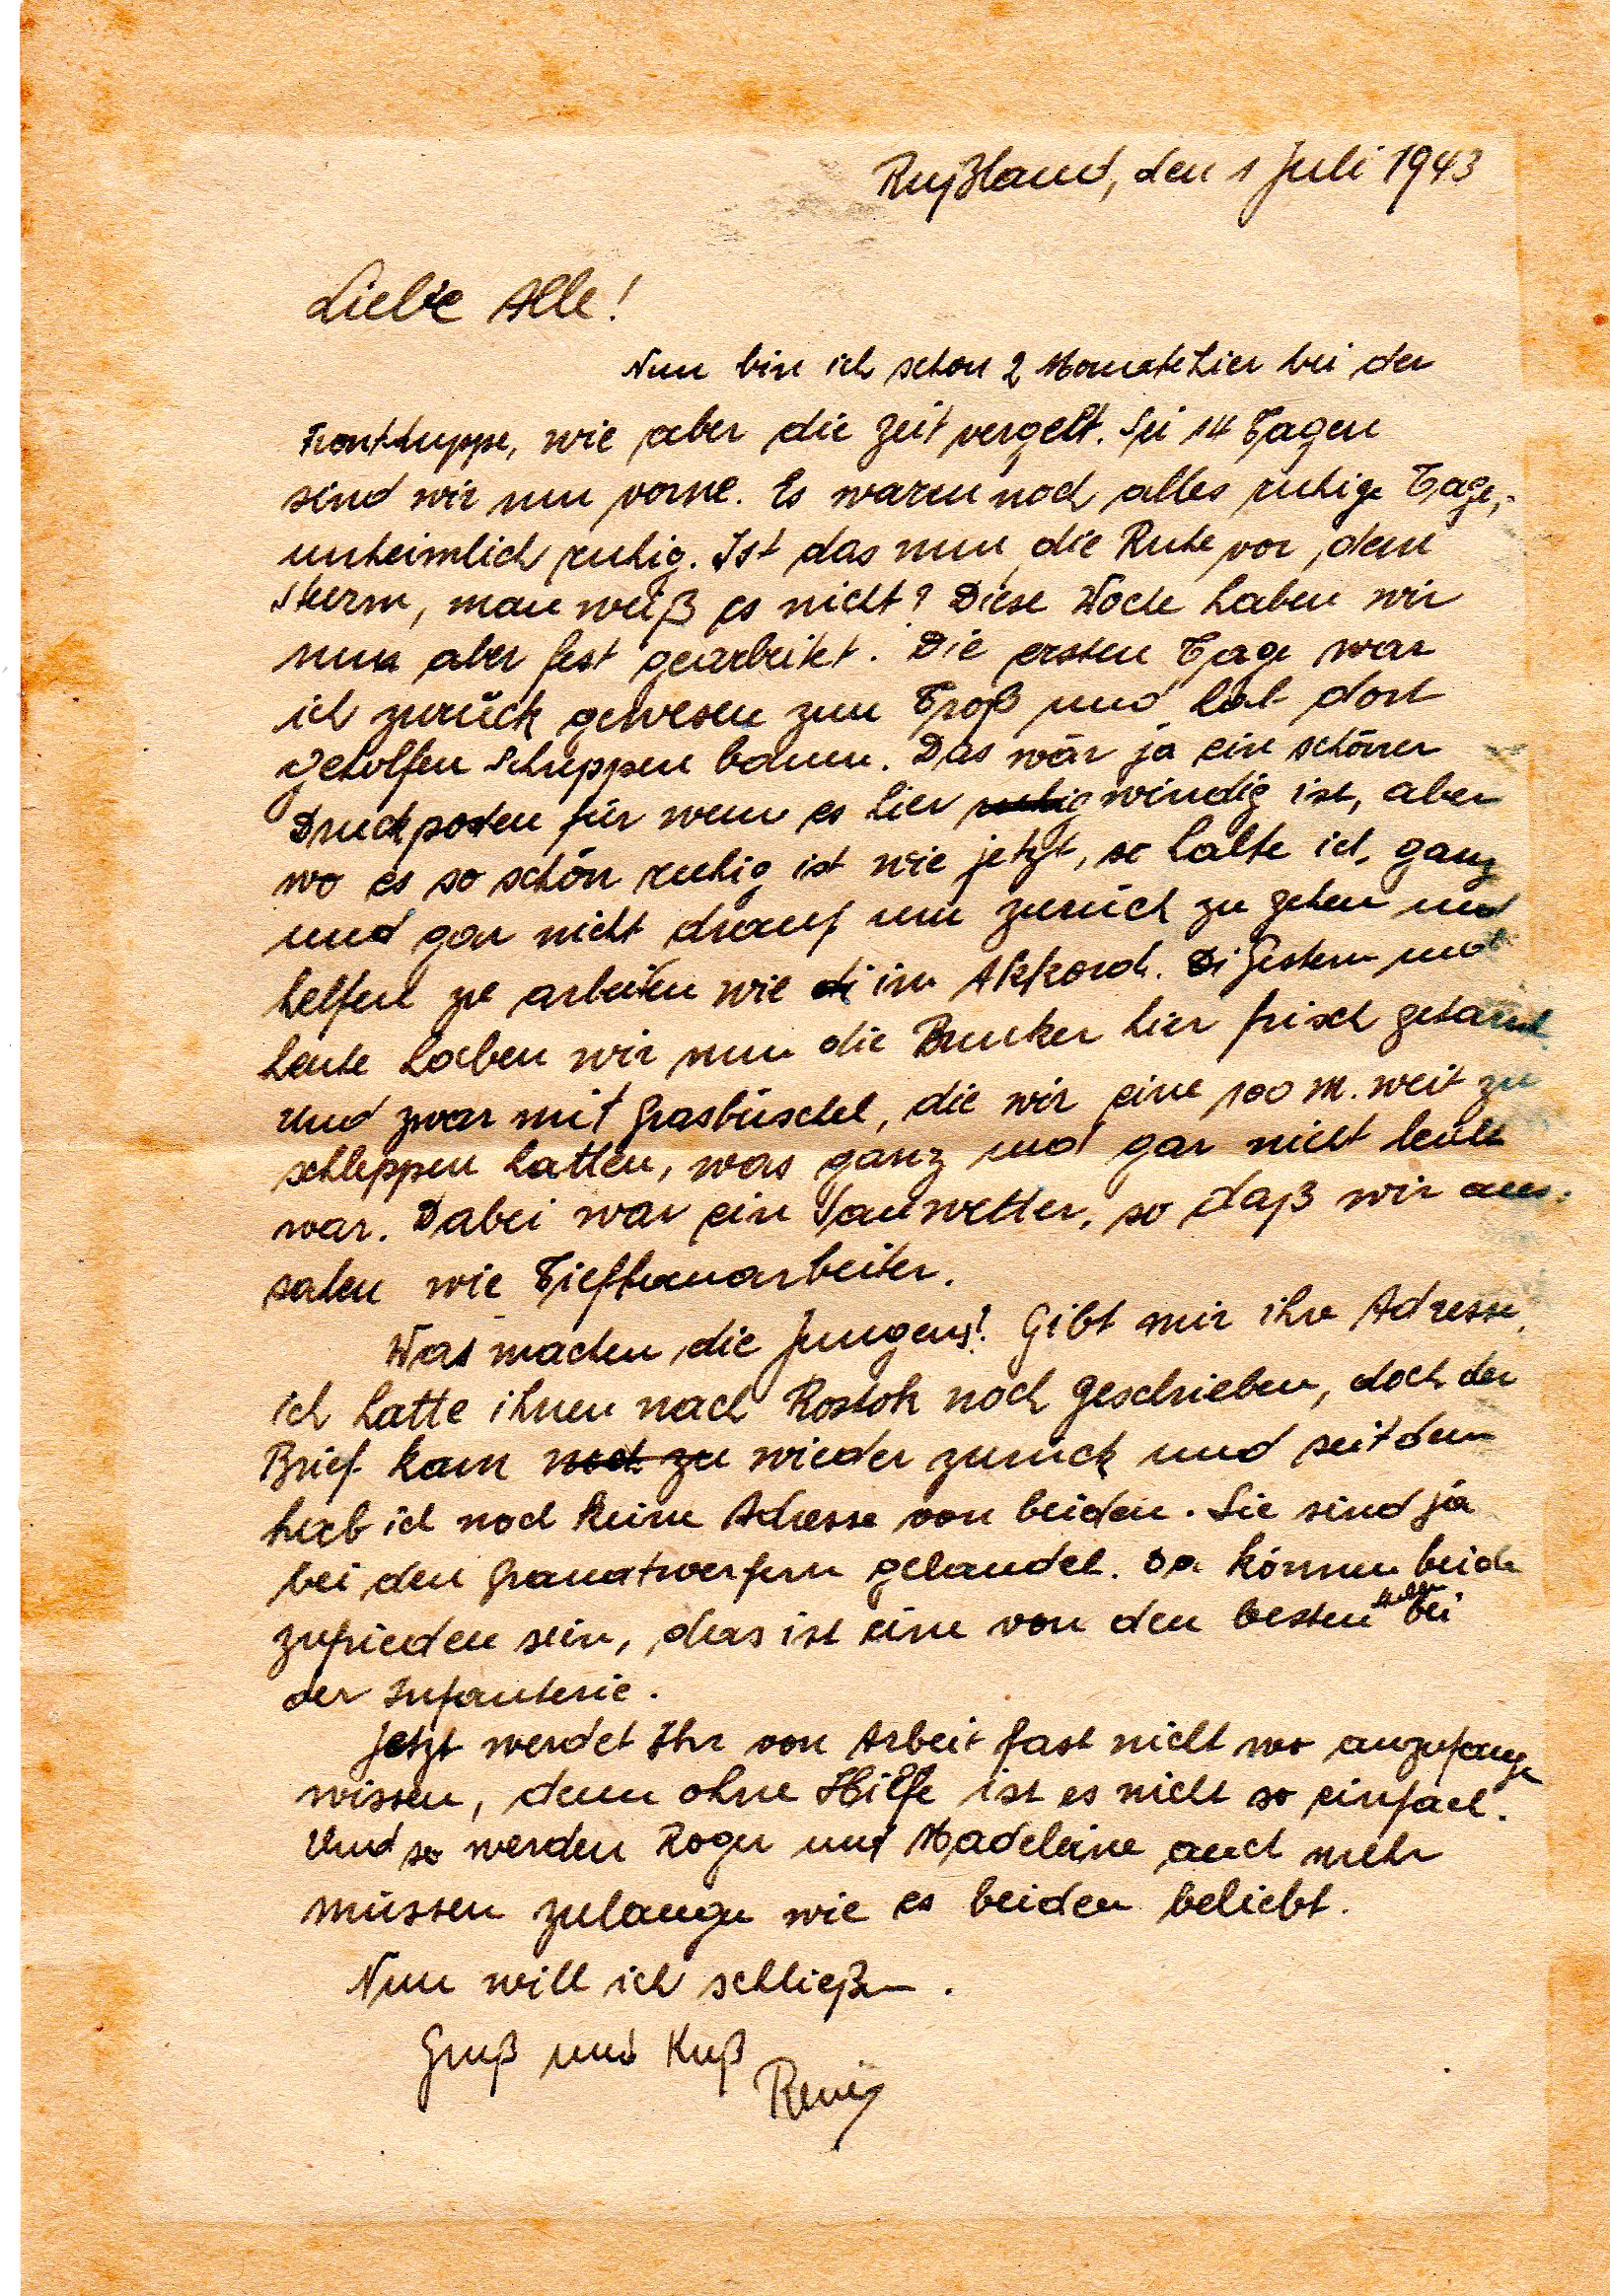 Rußland, den 1 Juli 1943
Liebe Alle!
Nun bin ich schon 2 Monate hier bei der
Fronttruppe, wie aber die Zeit vergeht. Sei 14 Tagen
sind wir nun vorne. Es waren noch alles ruhige Tage,
unheimlich ruhig. Ist das nun die Ruhe vor dem
Sturm, man weiß es nicht? Diese Woche haben wir
nun aber fest gearbeitet. Die ersten Tage war
ich zurück gewesen zum Troß und hab dort
geholfen Schuppen bauen. Das wär ja ein schöner
Druckposten für wenn es hier ruhig windig ist, aber
wo es so schön ruhig ist wie jetzt, so halte ich ganz
und gar nicht drauf um zurück zu gehen und
helfen zu arbeiten wie di im Akkord. Di Gestern und
heute haben wir nun die Bunker hier frisch getarnt
und zwar mit Grasbüschel, die wir eine 100 m. weit zu
schleppen hatten, was ganz und gar nicht leicht
war. Dabei war ein Sauwetter, so daß wir aus-
sahen wie Tiefbauarbeiter.
Was machen die Jungens? Gibt mir ihre Adresse,
ich hatte ihnen nach Rostok noch geschrieben, doch der
Brief kam noch zu wieder zurück und seitdem
hab ich noch keine Adresse von beiden. Sie sind ja
bei den Granatwerfern gelandet. Da können beide
zufrieden sein, das ist eine von den besten bei
der Infanterie.
Jetzt werdet Ihr von Arbeit fast nicht wo anzufangen
wissen, denn ohne Hilfe ist es nicht so einfach.
Und so werden Roger und Madeleine auch mehr
müssen zulangen wie es beiden beliebt.
Nun will ich schließen.
Gruß und Kuß